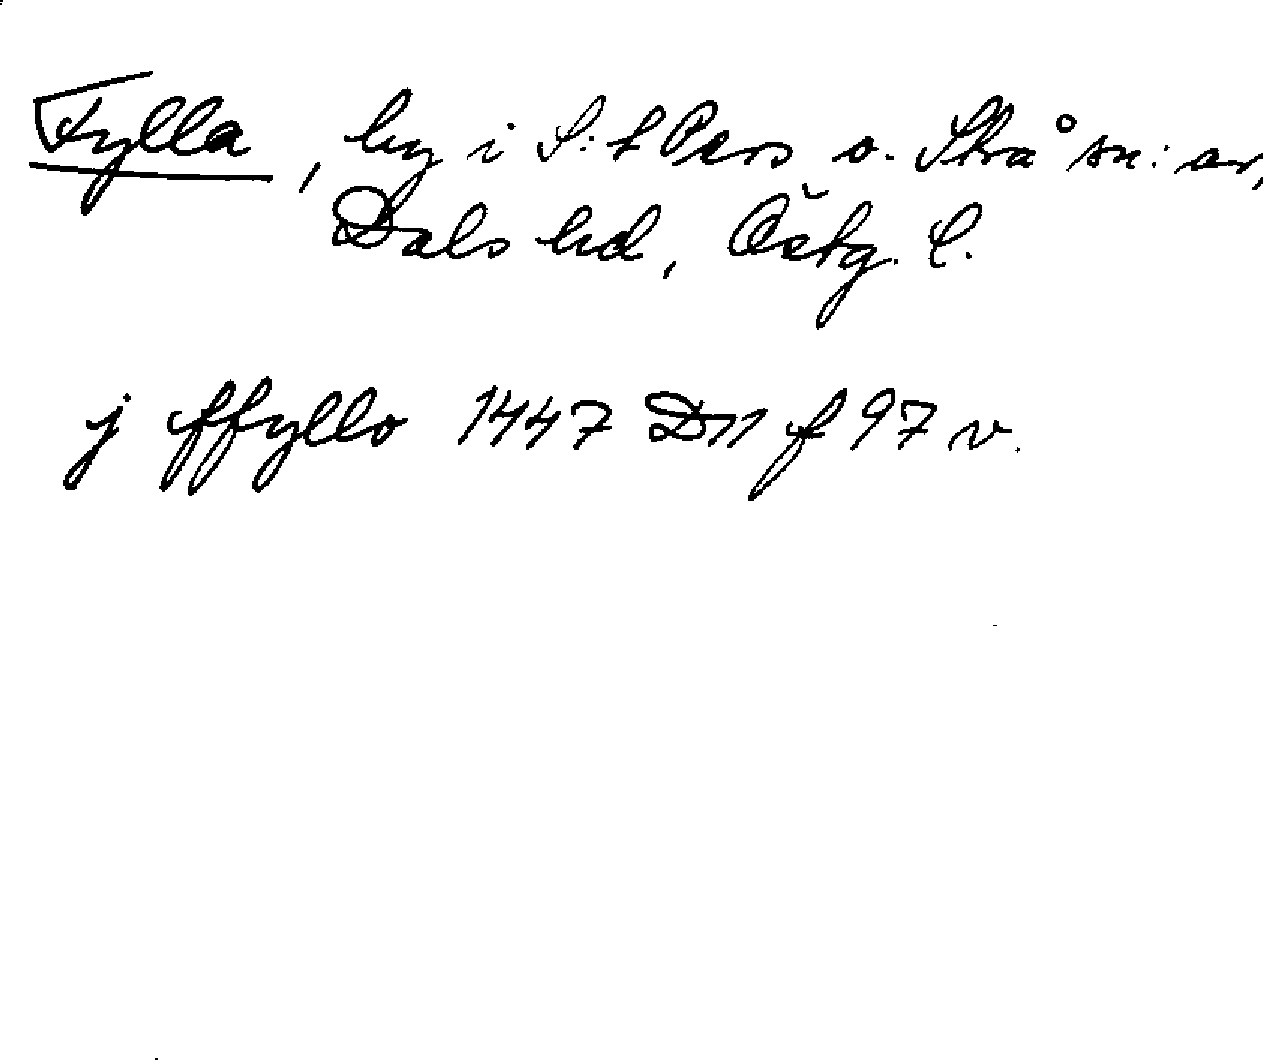 Fylla, by i S:t Pers o. Strå sn:ar,
Dals hd, Östg. l.
j ffyllo 1447 D11 f 97 v.